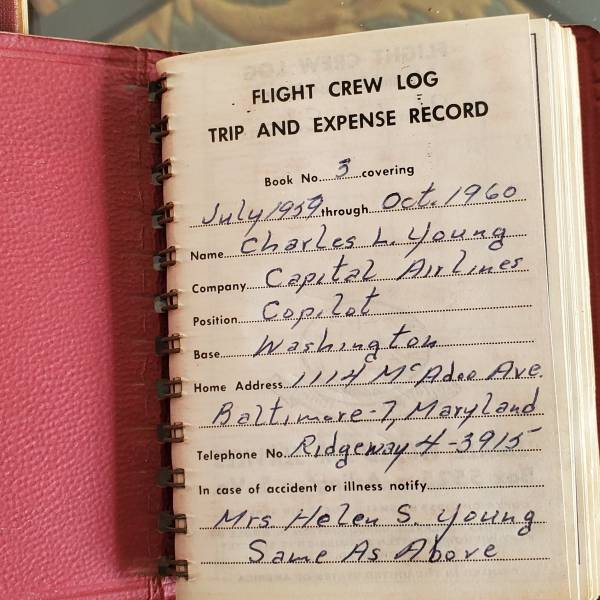 FLIGHT CREW LOG
TRIP AND EXPENSE RECORD
Book No. 3 covering
July 1959 through Oct. 1960
Name Charles L. Young
Company Capital Airlines
Position Copilot
Base Washington
Home Address 1114 McAdoo Ave.
Baltimore-7, Maryland
Telephone No. Ridgeway 4-3915
In case of accident or illness notify
Mrs Helen S. Young
Same As Above